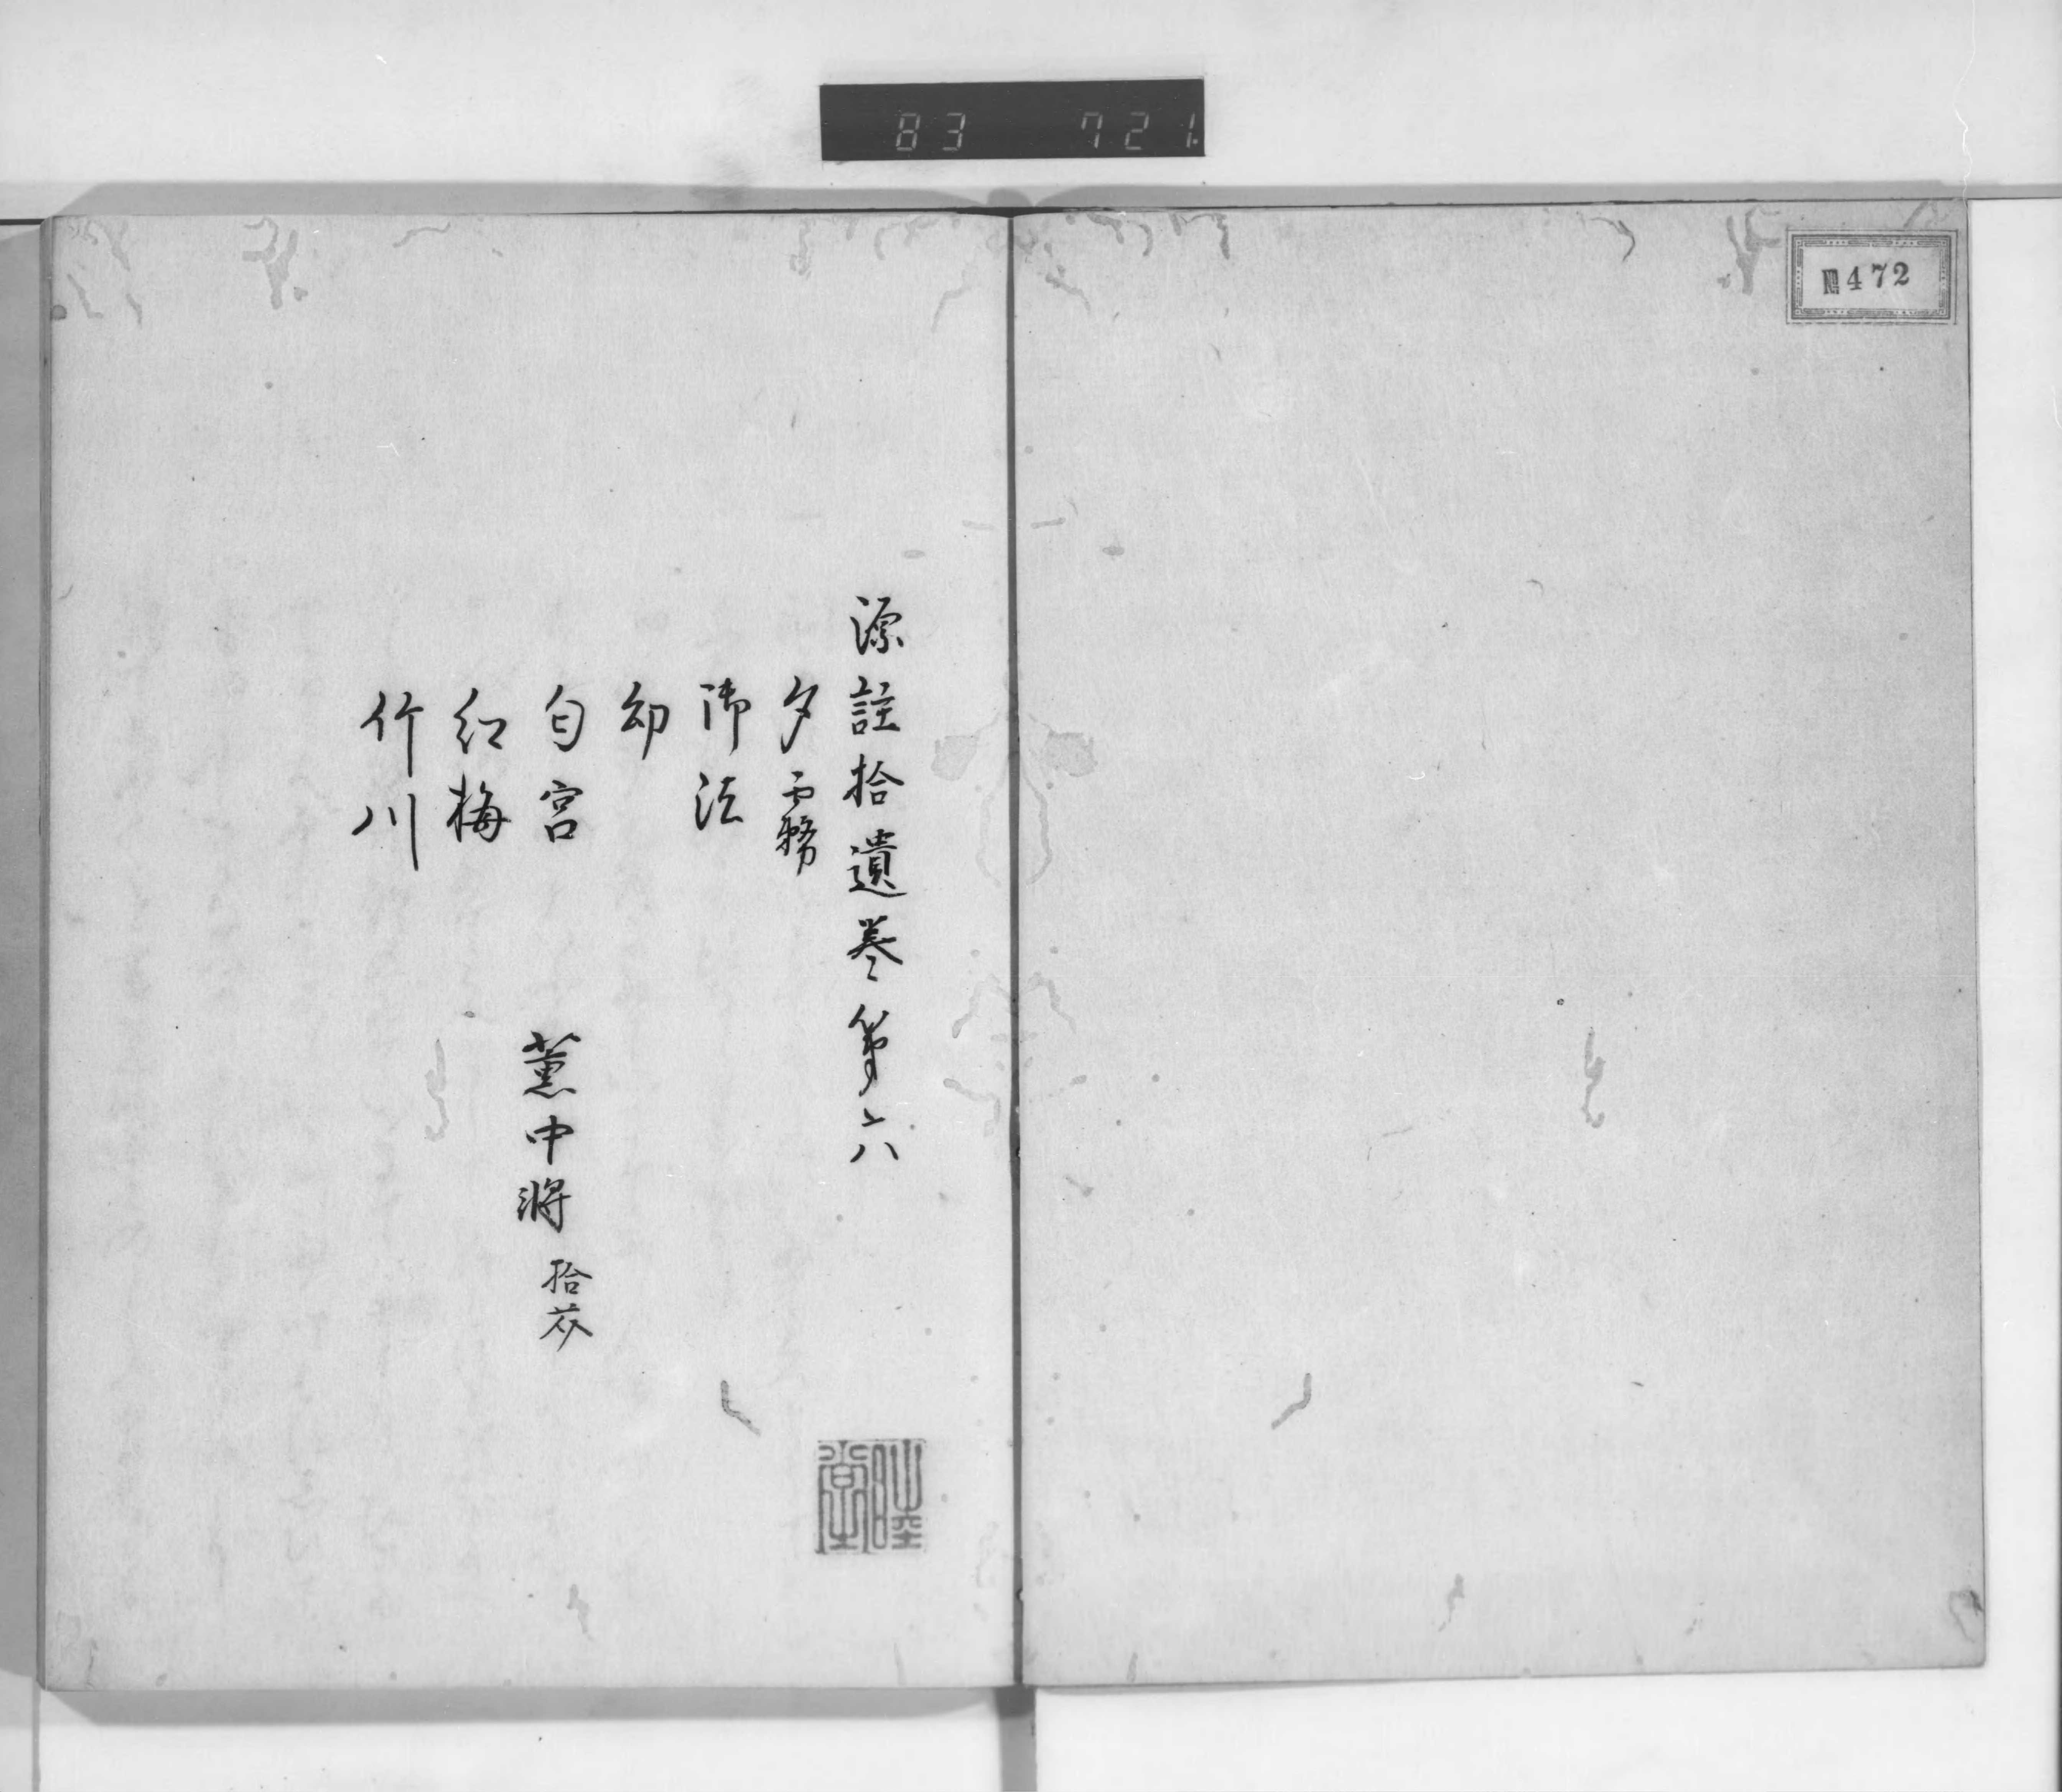 83 721.
№472
源註拾遺巻第六
夕霧
御法
幻
匂宮 薫中将 拾芥
紅梅
竹川